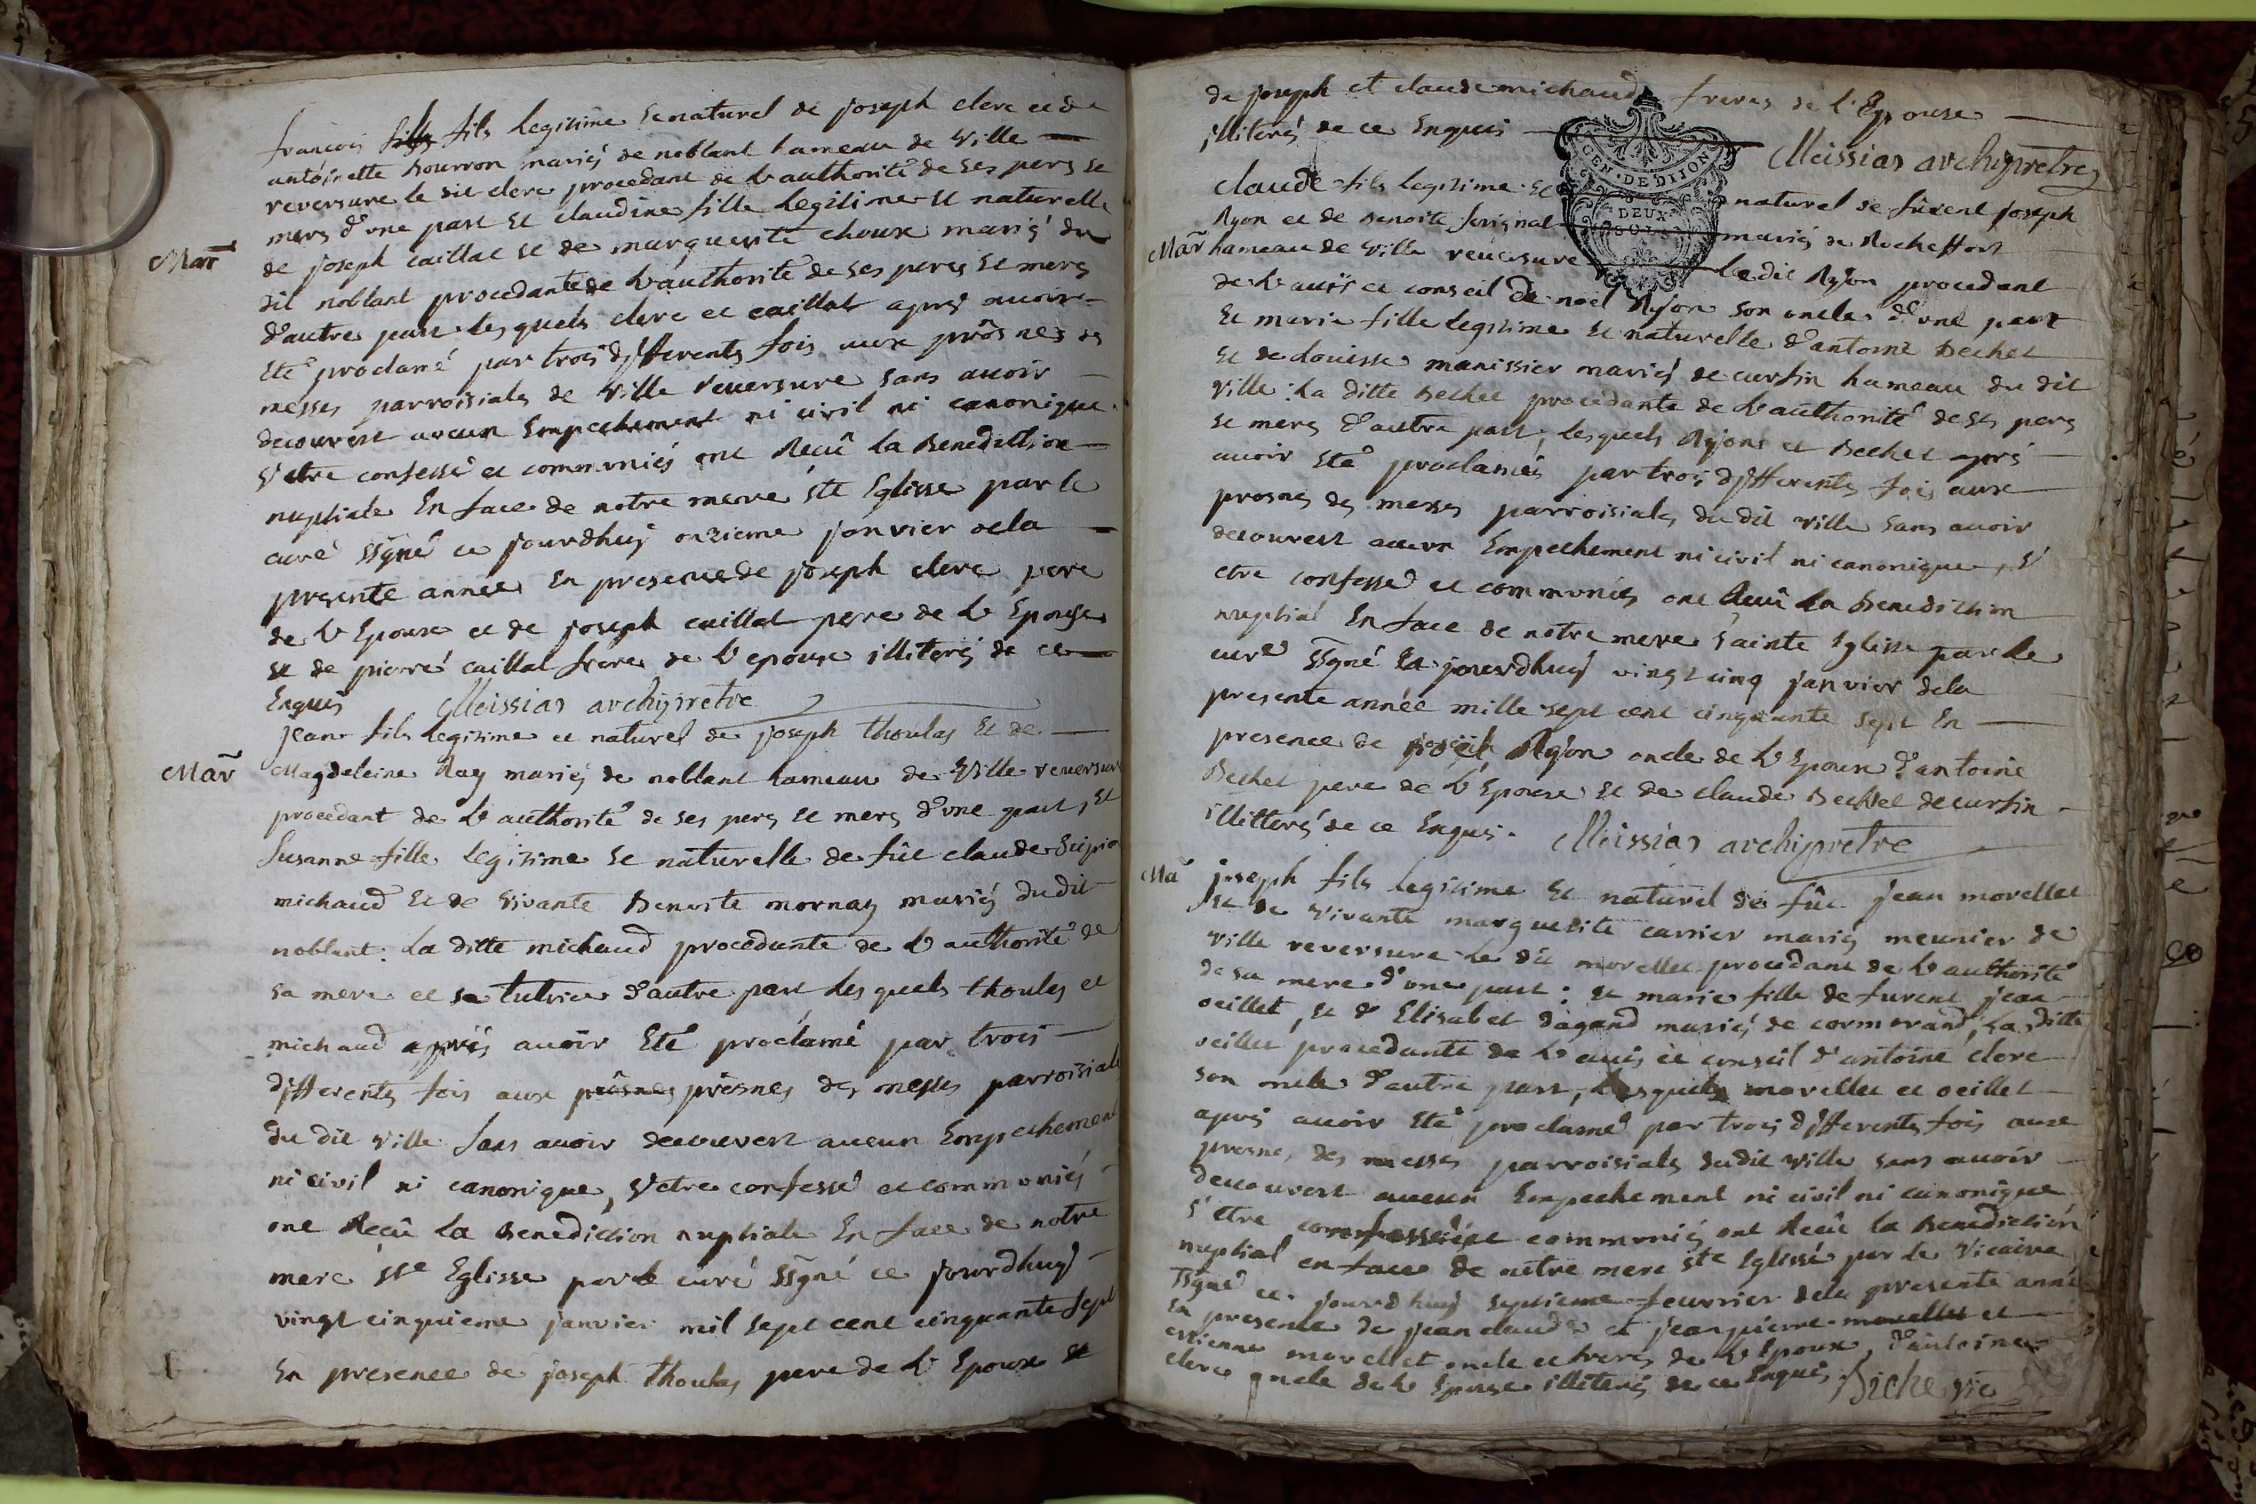 françois fils fils legitime et naturel de joseph clerc et de
antoinette bourron mariés de noblant hameau de Ville
reversure le dit clerc procedant de l'authorité de ses pere et
mere d'une part et claudine fille legitime et naturelle
Mar
de joseph caillat et de marguerite choux mariés du
dit noblant procedante de l'authorité de ses peres et meres
d'autre part lesquels clerc et caillat après avoir
eté proclamé par trois differents fois aux prosnes des
messes parroisiales de Ville reversure sans avoir
decouvert aucun Empechement ni civil ni canonique
s'etre confessé et communiés ont Recû la Benediction
nuptiale En face de notre mere ste Eglisse par le
curé ssgné ce jourdhuy onzieme janvier dela
presente année En presence de joseph clerc pere
de l'Epoux et de joseph caillat pere de l'Epouse
et de pierre caillat frere de l'epouse illiterés de ce
Enquis Meissiar archipretre
jean fils legitime et naturel de joseph thoulas et de
Mar Magdeleine Ray mariés de noblant hameau de Ville reversure
procedant de l'authorité de ses pere et mere d'une part, et
Susanne fille legitime et naturelle de fût claude
michaud et de vivante Benoite mornay mariés dudit
noblant: La ditte michaud procedante de l'authorité de
sa mere et sa tutrice d'autre part lesquels thoulas et
michaud après avoir Eté proclamé par trois
differents fois aux prosnes prosnes des messes parroisiales
du dit Ville sans avoir decouvert aucun Empechement
ni civil ni canonique, s'etre confessé et communiés
ont Recû la Benediction nuptiale En face de notre
mere ste Eglisse par le curé ssgné ce jourdhuy
vingt cinquieme janvier mil sept cent cinquante sept
En presence de joseph thoulas pere de l'Epoux et
de joseph et claude michaud freres de l'Epouse
illiterés de ce Enquis Meissiar archipretre
GEN. DE DIJON
DEUX SOLS
claude fils legitime et naturel de fûrent joseph
Ryon et de Benoite mariés de Rocheffort
Mar hameau de Ville reversure Le dit Ryon procedant
de l'avis et conseil de noel Ryon son oncle d'une part
Et marie fille legitime et naturelle d'antoine Bechet
et de Louisse manissier mariés de curtin hameau du dit
Ville: La ditte Bechet procedante de l'authorité de ses pere
et mere d'autre part, lesquels Ryon et Bechet après
avoir eté proclamés par trois differents fois aux
prosnes des messes parroisiales du dit Ville sans avoir
decouvert aucun Empechement ni civil ni canonique, s'
etre confessé et communiés ont Recû la Benediction
nuptial En face de notre mere sainte Eglisse par le
curé ssgné ce jourdhuy vingt cinq janvier dela
presente année mille sept cent cinquante sept En
presence de Ryon oncle de l'Epoux d'antoine
Bechet pere de l'Epouse et de claude Bechet de curtin
illitterés de ce Enquis. Meissiar archipretre
Ma joseph fils legitime et naturel de fût jean morellet
et de vivante marguerite carrier mariés meunier de
Ville reversure le dit morellet procedant de l'authorité
de sa mere d'une part: et marie fille de furent jean
oeillet, et d'Elisabet dagand mariés de cormorand, La ditte
oeillet procedante de l'avis et conseil d'antoine clerc
son oncle d'autre part, lesquels morellet et oeillet
après avoir eté proclamé par trois differents fois aux
prosnes des messes parroisiales dudit Ville sans avoir
decouvert aucun Empechement ni civil ni canonique
s'etre confessé et communiés ont Recû la Benediction
nuptial en face de notre mere ste Eglisse par le vicaire
ssgné ce jourdhuy septieme feuvrier dela presente anné
En presence de jean claude et jean pierre morellet et
estienne morellet oncle et freres de l'Epoux, d'antoine
clerc oncle de l'Epouse illiterés de ce Enquis. Biche vic